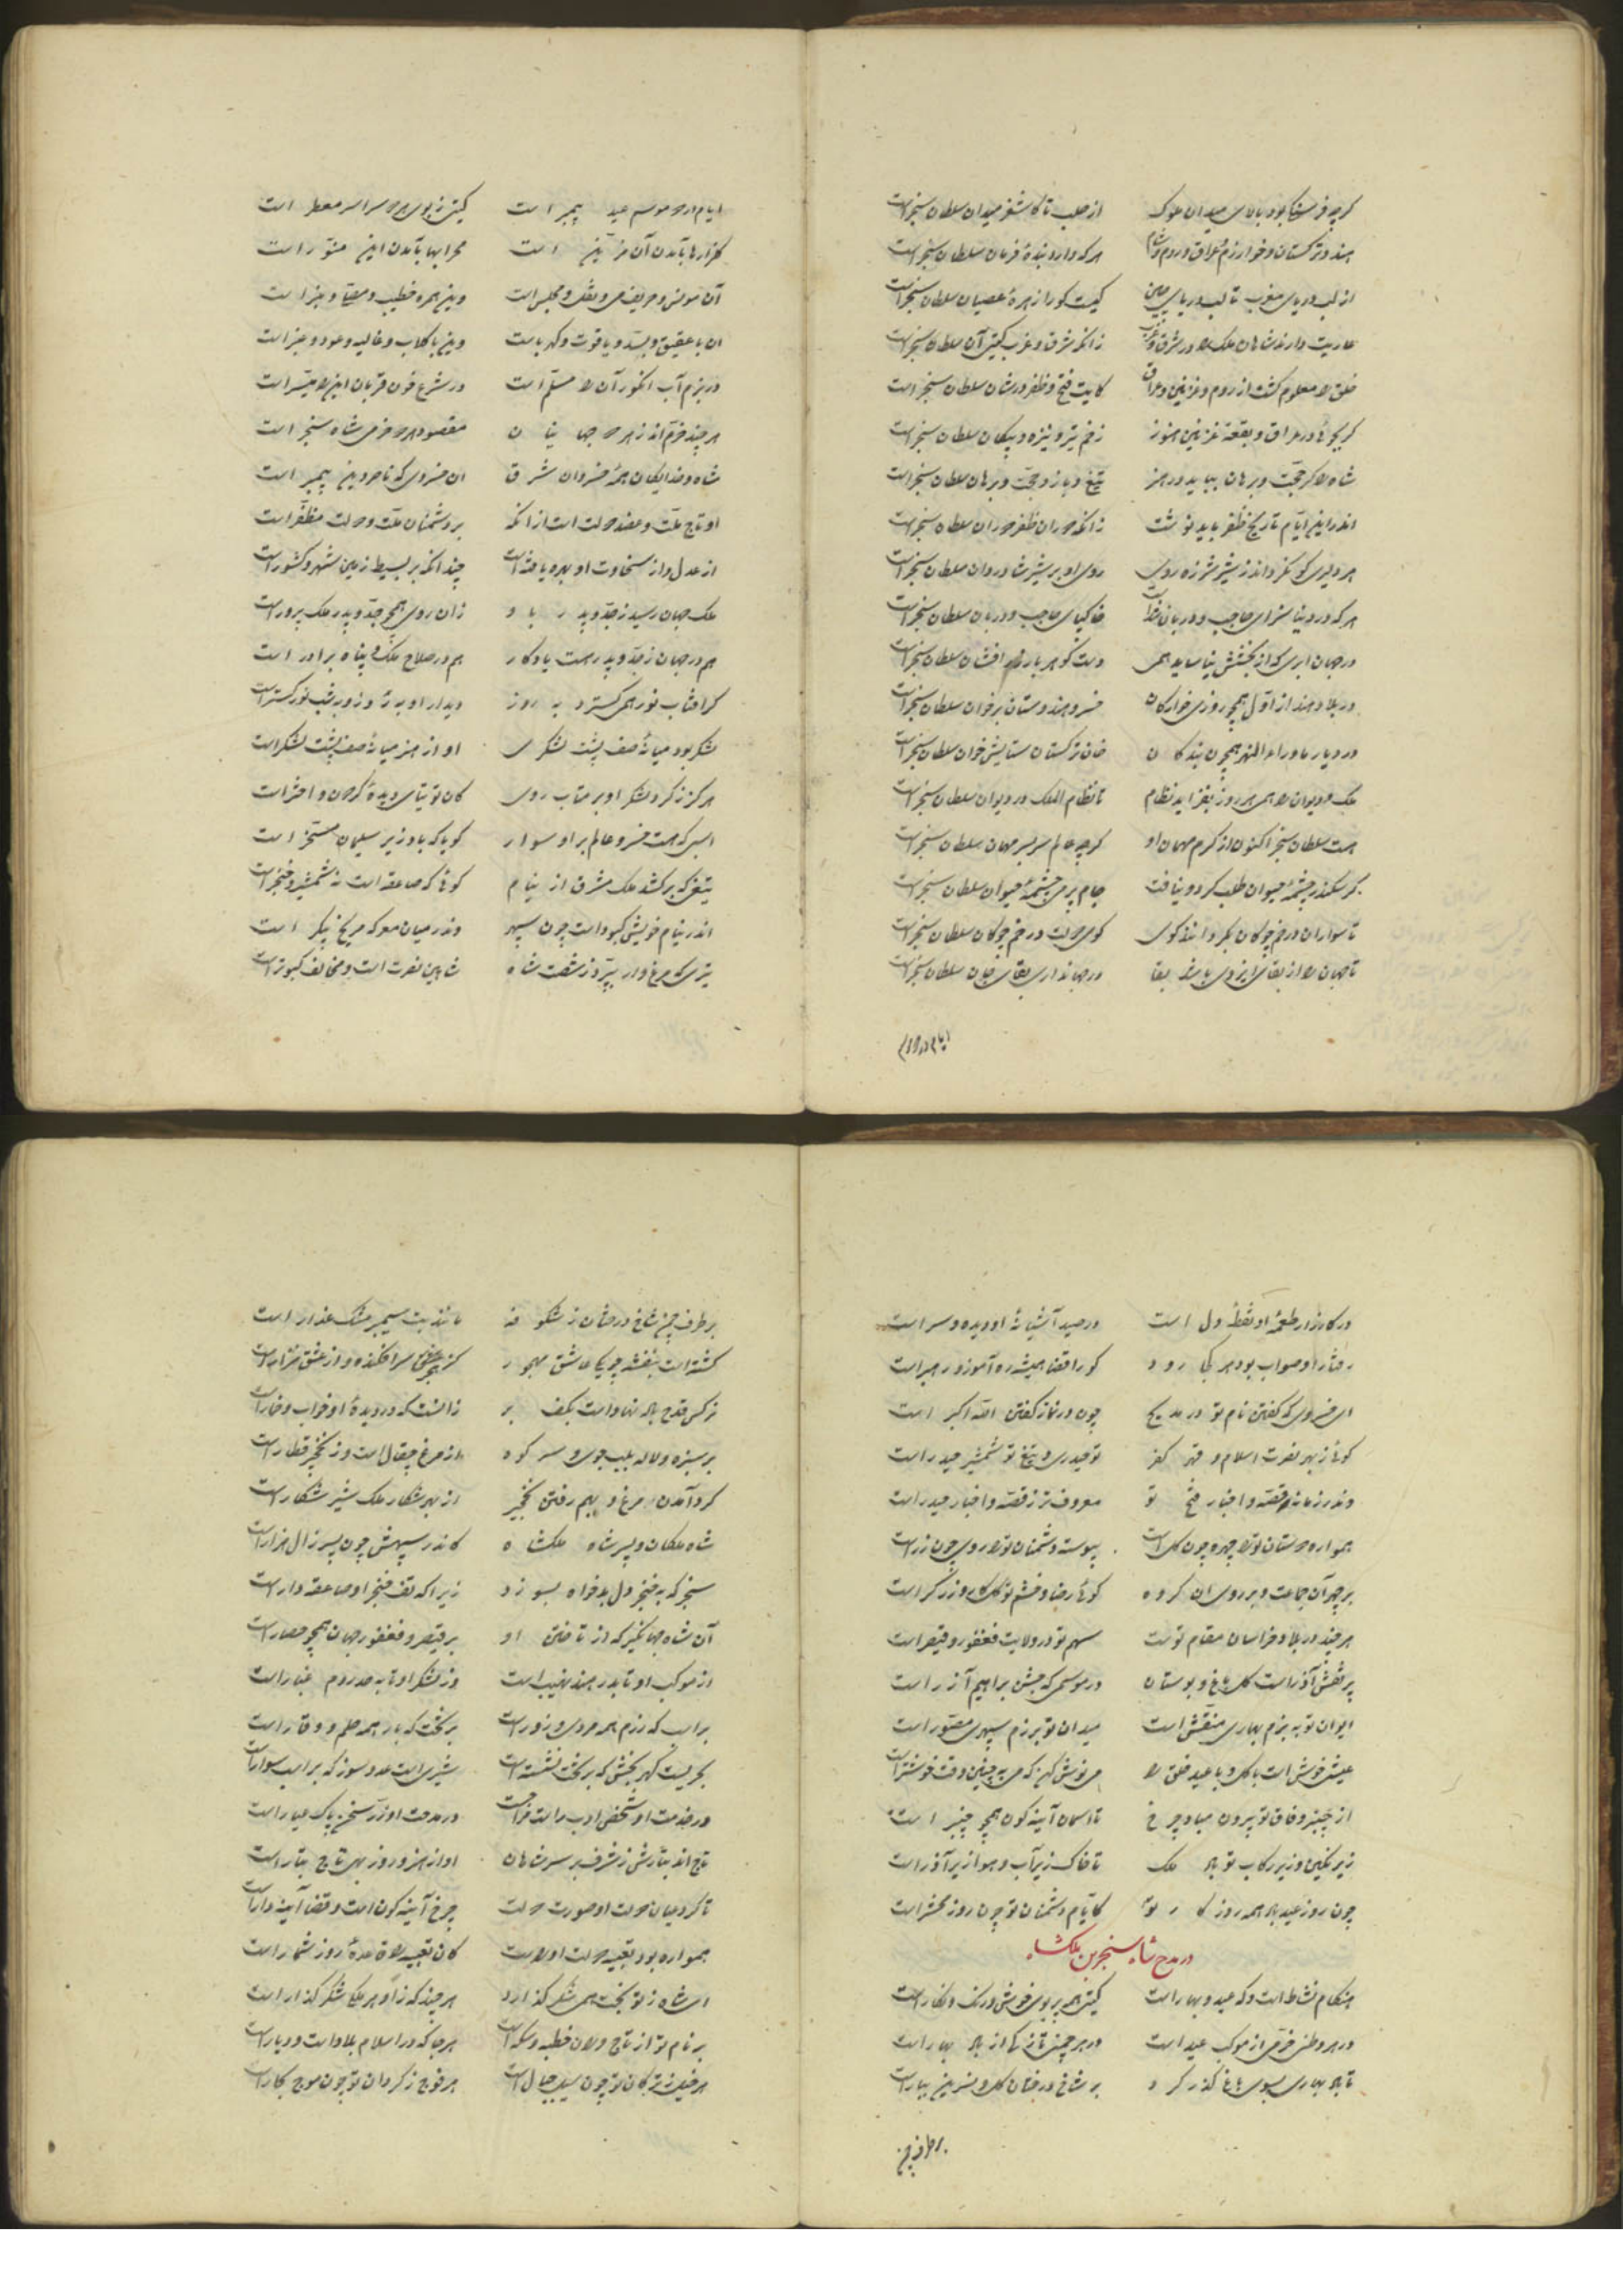 گرچه فرسنگی بود بالای میدان ملوک از حلب تا کاشغر میدان سلطان سنجرست
هند و ترکستان و خوارزم و عراق و روم و شام هر که دارد بندهٔ فرمان سلطان سنجرست
از لب دریای مغرب تا لب دریای چین کیست کورا زهرهٔ عصیان سلطان سنجرست
عاریت دارند شاهان ملک را در شرق و غرب زانکه شرق و غرب گیتی آن سلطان سنجرست
خلق را معلوم گشت از روم و غزنین و عراق کایت فتح و ظفر در شان سلطان سنجر است
گر بجویی در عراق و بقعهٔ غزنین هنوز زخم تیر و نیزه و پیکان سلطان سنجرست
شاه را گر حجت و برهان بباید در هنر تیغ و بازو حجت و برهان سلطان سنجرست
اندر این ایام تاریخ ظفر باید نوشت زانکه دوران ظفر دوران سلطان سنجرست
هر دلیری کو نگرداند ز شیر شرزه روی روی او بر شیر شادروان سلطان سنجرست
هر که در دنیا سزای حاجب و دربان خاکپای حاجب و دربان سلطان سنجرست
در جهان ابری که از بخشش نیاساید همی دست گوهر بار افشان سلطان سنجرست
در بلاد هند از اول همچو روزی خوارگان خسرو هندوستان بر خوان سلطان سنجرست
در دیار ماوراء النهر همچون بندگان خان ترکستان ستایش خوان سلطان سنجرست
ملک و دیوان را همی هر روز بفزاید نظام تا نظام الملک در دیوان سلطان سنجرست
هست سلطان سنجر اکنون از کرم مهمان او گرچه عالم سربسر مهمان سلطان سنجرست
گر سکندر چشمهٔ حیوان طلب کرد و نیافت جام پر می چشمهٔ حیوان سلطان سنجرست
تا سواران در خم چوگان بگردانند گوی گوی دولت در خم چوگان سلطان سنجرست
تا جهان را از بقای ایزدی باشد بقا در جهانداری بقای جان سلطان سنجرست
ایام ورود
ایام ورد و موسم عید پیمبر است گیتی ز بوی هر دو سراسر معطر است
گلزارها بآمدن آن مزین است محرابها بآمدن این منور است
آن مونس و حریف می و نقل و مجلس است وین همره خطیب و مصلا و منبر است
آن با عقیق و بسد و یاقوت و کهرباست وین با گلاب و غالیه و عود و عنبر است
در بزم آب انگور آن را مسلم است در شرع خون قربان این را میسر است
هر چند خرم اند ز هر دو جهانیان مقصود هر دو خرمی شاه سنجر است
شاه و خدایگان همه خسروان شرق آن خسروی که ناصر دین پیمبر است
او تاج ملت و عضد دولت است از آنکه بر دشمنان ملت و دولت مظفر است
از عدل و از سخاوت او بهره یافته است چندانکه بر بسیط زمین شهر و کشور است
ملک جهان رسید ز جد و پدر باو زان روی همچو جد و پدر ملک پرور است
هم در جهان ز جد و پدر هست یادگار هم در صلاح ملک پناه برادر است
گر آفتاب نور همی گسترد به روز دیدار او به روز و به شب نور گستر است
لشکر بود میانهٔ صف پشت لشکری او از هنر میانهٔ صف پشت لشکر است
هرگز ز گرد لشکر او بر متاب روی کان توتیای دیدهٔ گردون و اختر است
اسبی که هست خسرو عالم بر او سوار گویا که باد زیر سلیمان مسخر است
تیغی که برکشد ملک مشرق از نیام گوئی که صاعقه است نه شمشیر و خنجر است
اندر نیام خویش کبود است چون سپهر وندر میان معرکه مریخ پیکر است
تیری که مرغ وار بپرد ز شست شاه شاهین نصرت است و مخالف کبوتر است
در کارزار طعمهٔ او نقطهٔ دل است در صید آشیانهٔ او دیده و سر است
رفتار او صواب بود هر کجا رود کو را قضا همیشه ره آموز و رهبر است
ای خسروی که گفتن نام تو در مدیح چون در نماز گفتن الله اکبر است
گوئی ز بهر نصرت اسلام و قهر کفر تو حیدری و تیغ تو شمشیر حیدر است
وندر زمانه قصه و اخبار فتح تو معروف تر ز قصه و اخبار حیدر است
همواره دوستان تو را چهره چون گل است پیوسته دشمنان تو را روی چون زر است
بر چهر آن جماعت و بر روی آن گروه گوئی رضا و خشم تو گلکار و زرگر است
هر چند در بلاد خراسان مقام توست سهم تو در ولایت فغفور و قیصر است
پر نقش آذر است گل باغ و بوستان در موسمی که جشن براهیم آزر است
ایوان تو به بزم بهاری منقش است میدان تو برزم سپهری مصور است
عیش خوش است با گل و با عید خلق را می نوش کن که می به چنین وقت خوشتر است
از چنبر وفاق تو بیرون مباد چرخ تا آسمان آینه گون همچو چنبر است
زیر نگین و زیر رکاب تو باد ملک تا خاک زیر آب و هوا زیر آذر است
چون روز عید باد همه روزگار تو کایام دشمنان تو چون روز محشر است
در مدح شاه سنجر بن ملکشاه
هنگام نشاط است و گه عید و بهار است گیتی همه پر بوی خوش و رنگ و نگار است
در هر وطنی خرمی از موکب عید است در هر چمنی تازگی از باد بهار است
تا باد بهاری بسوی باغ گذر کرد بر شاخ درختان گل و نسرین ببار است
بر طرف چمن
بر طرف چمن شاخ درختان ز شکوفه مانند بت سیمبر مشک عذار است
گشته است بنفشه چو یکی عاشق مهجور کز هجر سرافکنده و از عشق نزار است
نرگس قدح باده نهاده است بکف بر زآنست که در دیدهٔ او خواب و خمار است
بر سبزه و لاله بلب جوی و سر کوه از مرغ چقال است وز نخجیر قطار است
گرد آمدن مرغ و بهم رفتن نخجیر از بهر شکار ملک شیر شکار است
شاه ملکان و پسر شاه ملکشاه کاندر سپهش چون پسر زال هزار است
سنجر که به خنجر دل بدخواه بسوزد زیرا که تف خنجر او صاعقه وار است
آن شاه جهانگیر که از تاختن او بر قیصر و فغفور جهان همچو حصار است
از موکب او تا بدر هند نهیب است وز لشکر او تا به حد روم غبار است
بر اسب که رزم همه مردی و زور است بر تخت که بار همه حلم و وقار است
بحریست گهر بخش که بر تخت نشسته است شیری است عدو سوز که بر اسب سوار است
در خدمت او شخص ادب راست فراخت در مدحت او زر سخن پاک عیار است
تاج اند تبارش ز شرف بر سر شاهان او از هنر و روز بهی تاج تبار است
تا گرد میان دولت او صورت دولت چرخ آینه گون است و قضا آینه دار است
همواره بود تعبیه دولت او راست کان تعبیه را قاعدهٔ روز شمار است
ای شاه ز تو بخت همی شکر گذارد هر چند که ز او هر ملکی شکر گذار است
بر نام تو از تاج وران خطبه و سکه است هر جا که در اسلام بلاد است و دیار است
هر خیل ز ترکان تو چون سیل جبال است هر فوج ز گردان تو چون موج بحار است